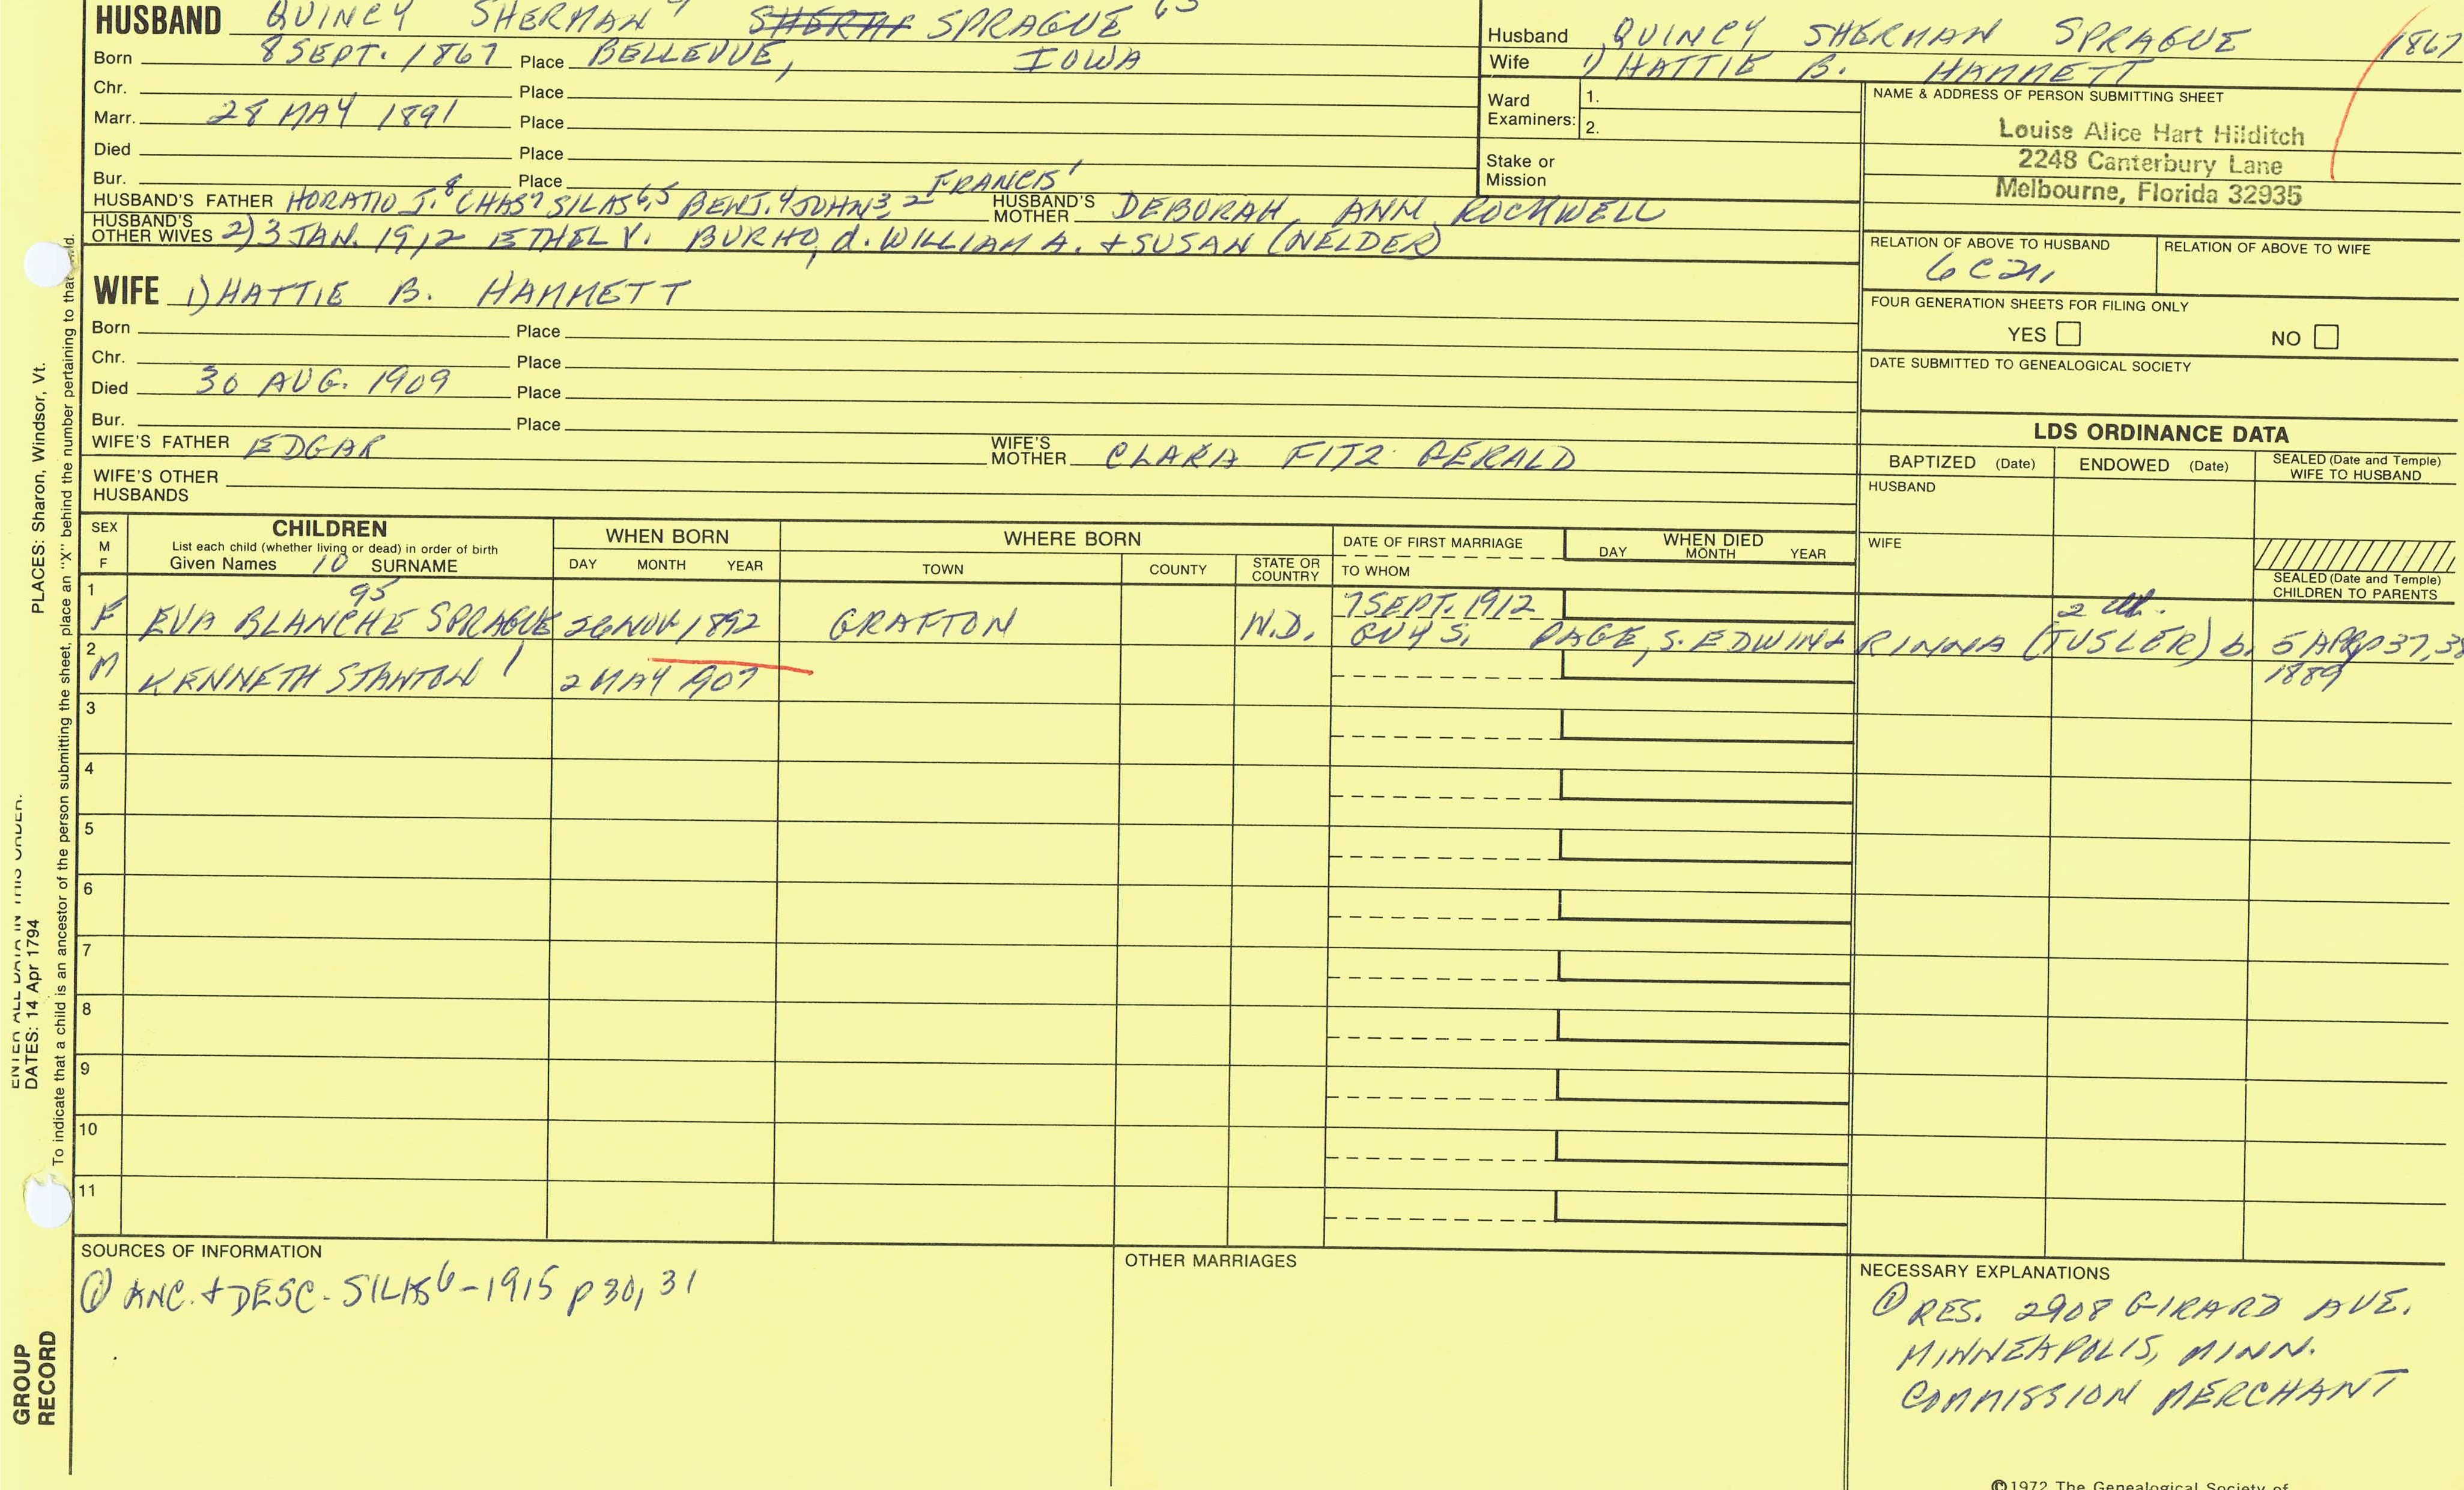 HUSBAND QUINCY SHERMAN SPRAGUE
Born 8 SEPT. 1867 Place BELLEVUE, IOWA
Chr. Place
Marr. 28 MAY 1891 Place
Died Place
Bur. Place
HUSBAND'S FATHER HORATIO J.8 CHAS7 SILAS6,5 BENJ.4 JOHN3,2 FRANCIS1 HUSBAND'S MOTHER DEBORAH ANN ROCKWELL
HUSBAND'S OTHER WIVES 2) 3 JAN. 1912 ETHEL V. BURHO, d. WILLIAM A. + SUSAN (NELDER)
WIFE 1) HATTIE B. HAMMETT
Born Place
Chr. Place
Died 30 AUG. 1909 Place
Bur. Place
WIFE'S FATHER EDGAR WIFE'S MOTHER CLARA FITZ GERALD
WIFE'S OTHER HUSBANDS
Husband QUINCY SHERMAN SPRAGUE 1867
Wife 1) HATTIE B. HAMMETT
Ward Examiners: 1.
2.
Stake or Mission
NAME & ADDRESS OF PERSON SUBMITTING SHEET
Louise Alice Hart Hilditch
2248 Canterbury Lane
Melbourne, Florida 32935
RELATION OF ABOVE TO HUSBAND RELATION OF ABOVE TO WIFE
FOUR GENERATION SHEETS FOR FILING ONLY
YES NO
DATE SUBMITTED TO GENEALOGICAL SOCIETY
LDS ORDINANCE DATA
BAPTIZED (Date) ENDOWED (Date) SEALED (Date and Temple) WIFE TO HUSBAND
HUSBAND
WIFE
SEALED (Date and Temple) CHILDREN TO PARENTS
SEX M F
CHILDREN
List each child (whether living or dead) in order of birth
Given Names 10 SURNAME
WHEN BORN
DAY MONTH YEAR
WHERE BORN
TOWN COUNTY STATE OR COUNTRY
DATE OF FIRST MARRIAGE
TO WHOM
WHEN DIED
DAY MONTH YEAR
95
1 F EVA BLANCHE SPRAGUE 26 NOV 1892 GRAFTON N.D. 7 SEPT. 1912
GUY S. PAGE, S. EDWIN + RINNA (TUSLER) b. 5 APR 1889 p 37, 38
2 M KENNETH STANTON 2 MAY 1907
3
4
5
6
7
8
9
10
11
SOURCES OF INFORMATION
① ANC. + DESC. SILAS6 - 1915 p 30, 31
OTHER MARRIAGES
NECESSARY EXPLANATIONS
① RES. 2908 GIRARD AVE.
MINNEAPOLIS, MINN.
COMMISSION MERCHANT
©1972 The Genealogical Society of
PLACES: Sharon, Windsor, Vt.
ENTER ALL DATA IN THIS ORDER:
DATES: 14 Apr 1794
To indicate that a child is an ancestor of the person submitting the sheet, place an "X" behind the number pertaining to that child.
GROUP RECORD